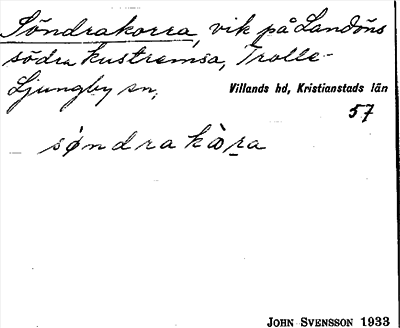 Söndrakorra, vik på Landöns
södra kustremsa, Trolle-
Ljungby sn,
Villands hd, Kristianstads län
57
søndra kòra
JOHN SVENSSON 1933